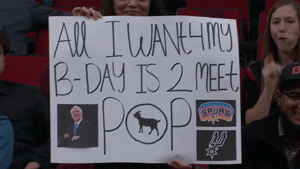 All I WANT 4 MY
B-DAY IS 2 MEEt
POP
SPURS